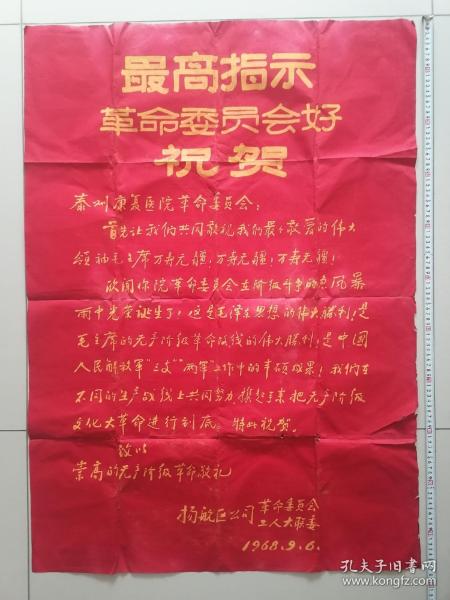 最高指示
革命委员会好
祝贺
泰州康复医院革命委员会：
首先让我们共同敬祝我们的最最敬爱的伟大
领袖毛主席万寿无疆，万寿无疆，万寿无疆！
欣闻你院革命委员会在阶级斗争的急风暴
雨中光荣诞生了，这是毛泽东思想的伟大胜利！是
毛主席的无产阶级革命路线的伟大胜利！是中国
人民解放军"三支""两军"工作中的丰硕成果！我们在
不同的生产战线上共同努力，携起手来把无产阶级
文化大革命进行到底。特此祝贺。
致以
崇高的无产阶级革命敬礼
扬航区公司革命委员会
工人大联委
1968.9.6.
孔夫子旧书网
www.kongfz.com